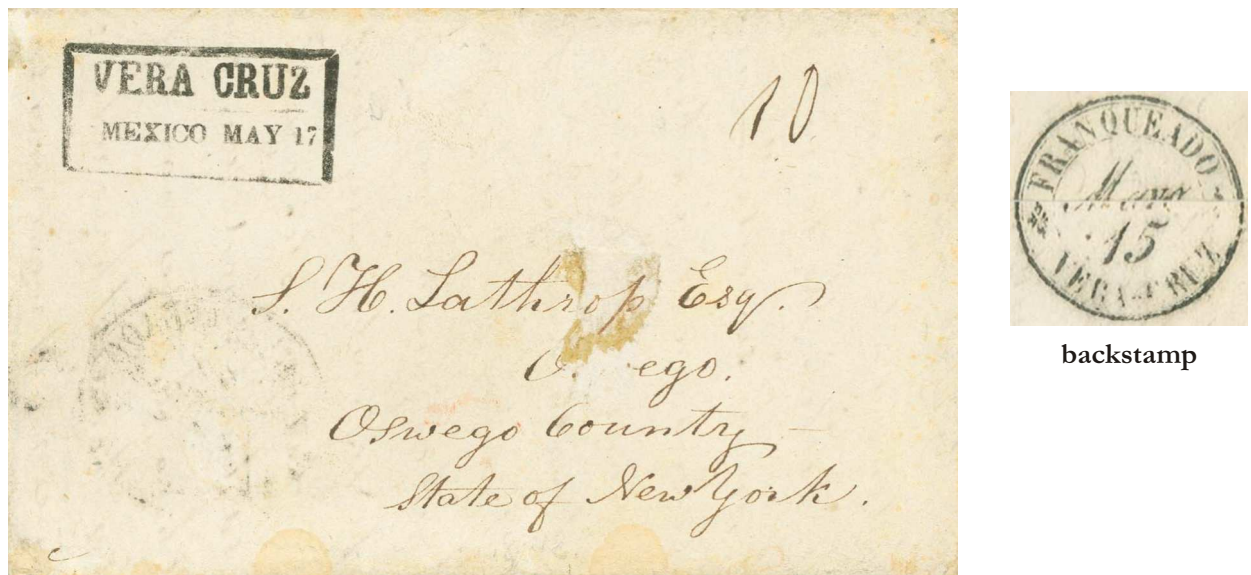 VERA CRUZ
MEXICO MAY 17
10
S. H. Lathrop Esq.
ego.
Oswego County
State of New York.
FRANQUEADO
Mayo
15
VERA-CRUZ
backstamp